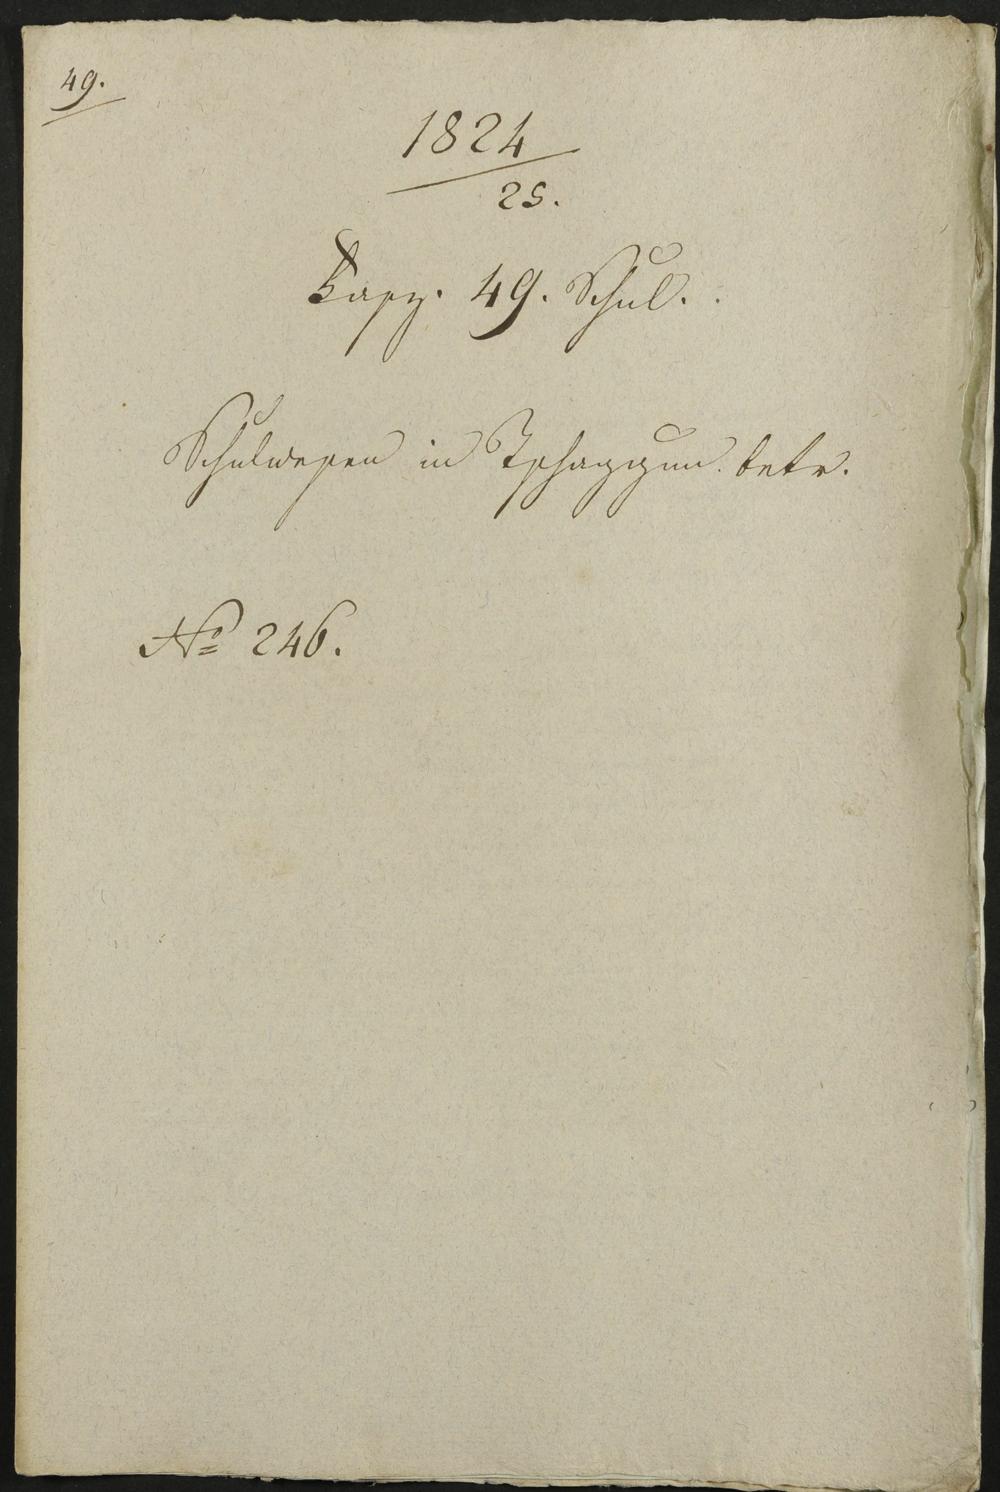 49.
1824
25.
Fasz. 49. Schul.
Schulwesen in Tschaggun. betr.
No 246.